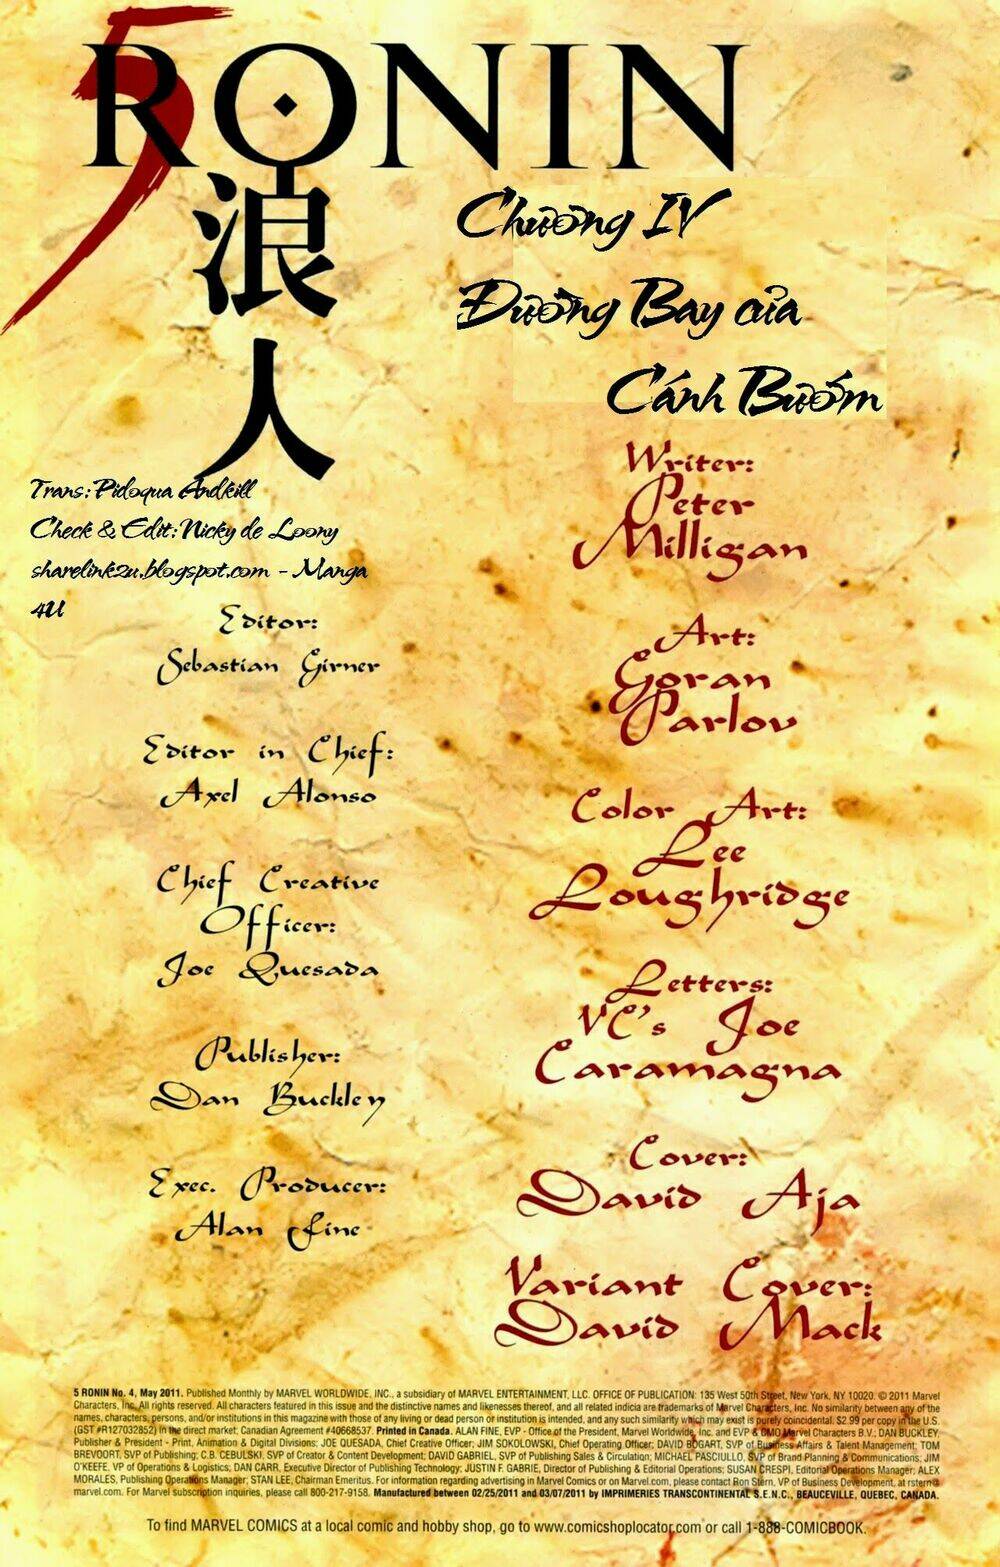 5 RONIN
浪人
Chương IV
Đường Bay của
Cánh Bướm
Trans: Pidoqua Andkill
Check & Edit: Nicky de Loony
sharelink2u.blogspot.com - Manga
4U
Editor:
Sebastian Girner
Editor in Chief:
Axel Alonso
Chief Creative
Officer:
Joe Quesada
Publisher:
Dan Buckley
Exec. Producer:
Alan Fine
Writer:
Peter
Milligan
Art:
Goran
Parlov
Color Art:
Lee
Loughridge
Letters:
VC's Joe
Caramagna
Cover:
David Aja
Variant Cover:
David Mack
5 RONIN No. 4, May 2011. Published Monthly by MARVEL WORLDWIDE, INC., a subsidiary of MARVEL ENTERTAINMENT, LLC. OFFICE OF PUBLICATION: 135 West 50th Street, New York, NY 10020. © 2011 Marvel
Characters, Inc. All rights reserved. All characters featured in this issue and the distinctive names and likenesses thereof, and all related indicia are trademarks of Marvel Characters, Inc. No similarity between any of the
names, characters, persons, and/or institutions in this magazine with those of any living or dead person or institution is intended, and any such similarity which may exist is purely coincidental. $2.99 per copy in the U.S.
(GST #R127032852) in the direct market; Canadian Agreement #40668537. Printed in Canada. ALAN FINE, EVP - Office of the President, Marvel Worldwide, Inc. and EVP & CMO Marvel Characters B.V.; DAN BUCKLEY,
Publisher & President - Print, Animation & Digital Divisions; JOE QUESADA, Chief Creative Officer; JIM SOKOLOWSKI, Chief Operating Officer; DAVID BOGART, SVP of Business Affairs & Talent Management; TOM
BREVOORT, SVP of Publishing; C.B. CEBULSKI, SVP of Creator & Content Development; DAVID GABRIEL, SVP of Publishing Sales & Circulation; MICHAEL PASCIULLO, SVP of Brand Planning & Communications; JIM
O'KEEFE, VP of Operations & Logistics; DAN CARR, Executive Director of Publishing Technology; JUSTIN F. GABRIE, Director of Publishing & Editorial Operations; SUSAN CRESPI, Editorial Operations Manager; ALEX
MORALES, Publishing Operations Manager; STAN LEE, Chairman Emeritus. For information regarding advertising in Marvel Comics or on Marvel.com, please contact Ron Stern, VP of Business Development, at rstern@
marvel.com. For Marvel subscription inquiries, please call 800-217-9158. Manufactured between 02/25/2011 and 03/07/2011 by IMPRIMERIES TRANSCONTINENTAL S.E.N.C., BEAUCEVILLE, QUEBEC, CANADA.
To find MARVEL COMICS at a local comic and hobby shop, go to www.comicshoplocator.com or call 1-888-COMICBOOK.